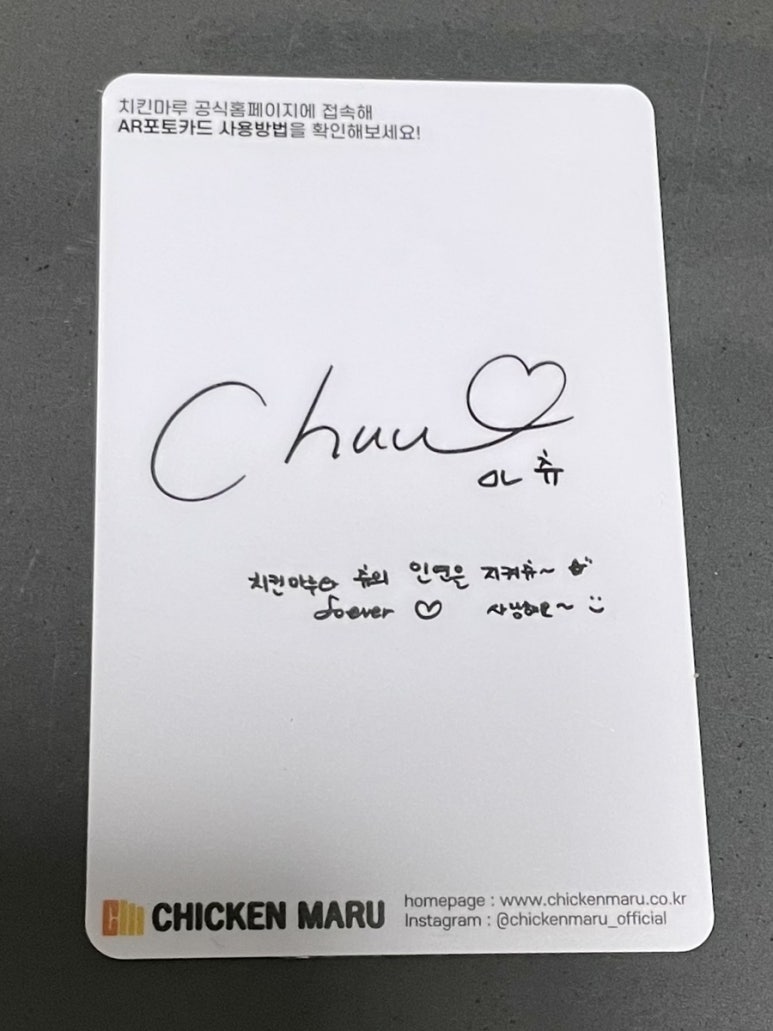 치킨마루 공식홈페이지에 접속해
AR포토카드 사용방법을 확인해보세요!
Chuu♡
츄
치킨마루와 츄의 인연을 지켜츄~
forever ♡ 사랑해요~
CHICKEN MARU
homepage : www.chickenmaru.co.kr
Instagram : @chickenmaru_official